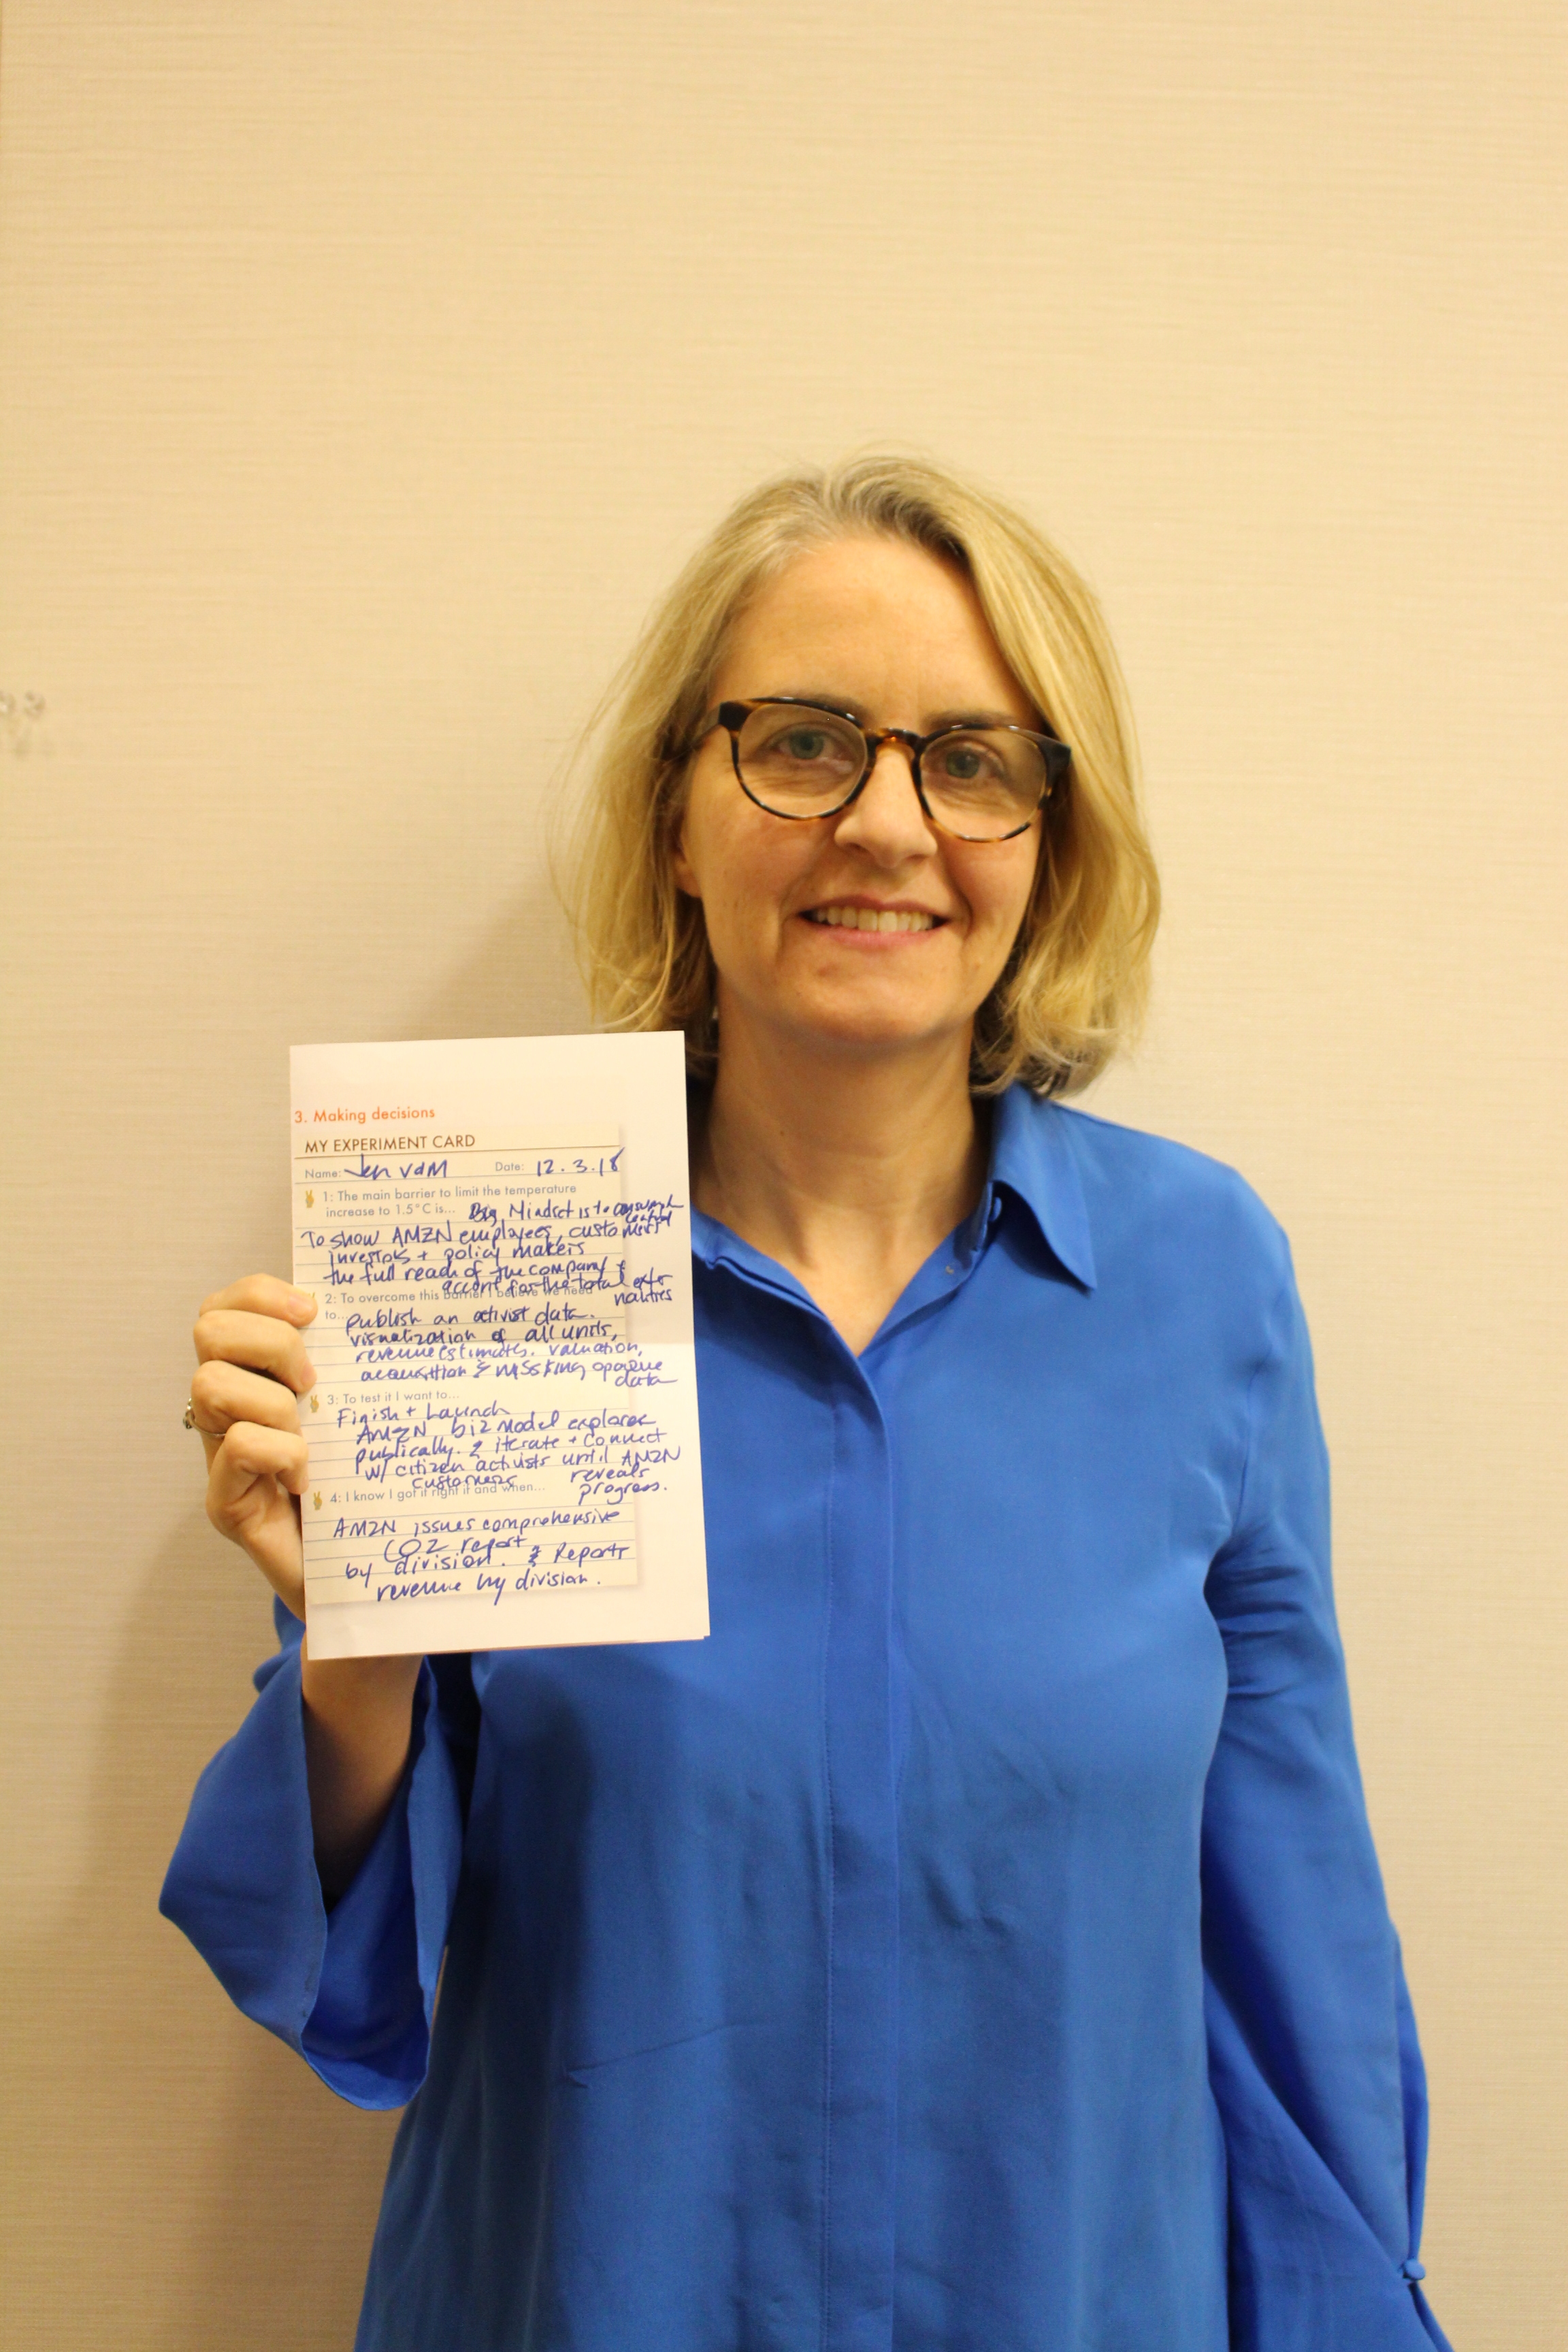 3. Making decisions
MY EXPERIMENT CARD
Name: Jen vdM Date: 12.3.18
1: The main barrier to limit the temperature
increase to 1.5°C is... Big Mindset is to
To show AMZN employees, customers
investors + policy makers
the full reach of the company +
account for the total exter
nalities
2: To overcome this barrier I believe we need
to... publish an activist data
visualization of all units,
revenue estimates. valuation,
acquisition & missing opaque
data
3: To test it I want to...
Finish + Launch
AMZN biz model explorer
publically. & iterate + connect
w/ citizen activists until AMZN
customers reveals
progress.
4: I know I got it right if and when...
AMZN issues comprehensive
CO2 report
by division. & Reports
revenue by division.